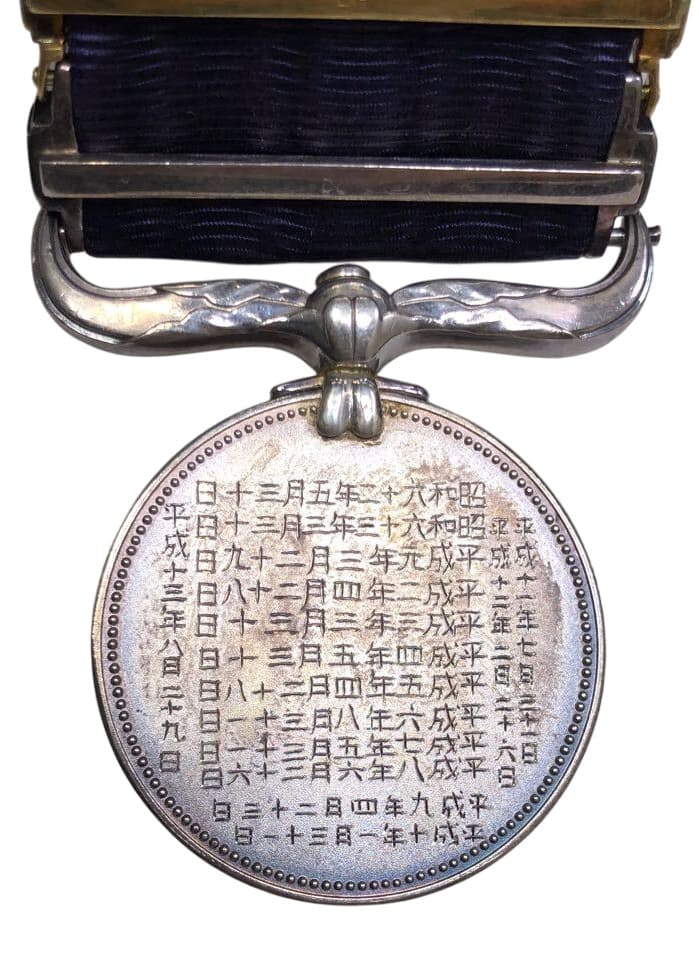 昭和六十二年五月三十日
昭和六十三年三月三十日
平成元年三月二十九日
平成二年四月二十八日
平成三年三月三十日
平成四年五月三十日
平成五年四月二十八日
平成六年八月三十一日
平成七年五月三十一日
平成八年六月二十六日
平成九年四月二十三日
平成十年一月三十一日
平成十一年七月三十日
平成十二年二月二十六日
平成十三年八月二十九日